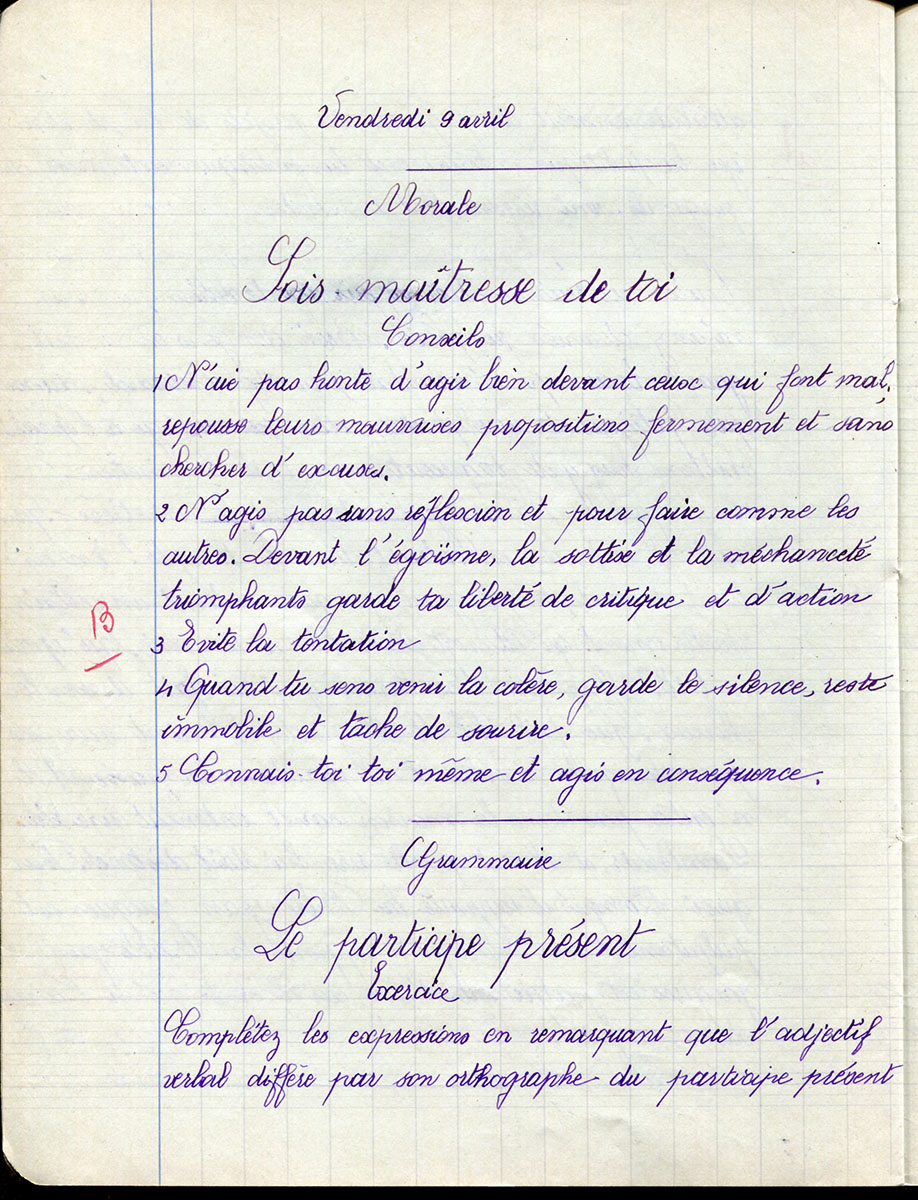 Vendredi 9 avril
Morale
Sois maîtresse de toi
Conseils
1 N'aie pas honte d'agir bien devant ceux qui font mal.
repousse leurs mauvaises propositions fermement et sans
chercher d'excuses.
2 N'agis pas sans réflexion et pour faire comme les
autres. Devant l'égoïsme, la sottise et la méchanceté
triomphants garde ta liberté de critique et d'action
B
3 Evite la tentation
4 Quand tu sens venir la colère, garde le silence, reste
immobile et tâche de sourire.
5 Connais-toi toi même et agis en conséquence.
Grammaire
Le participe présent
Exercice
Complétez les expressions en remarquant que l'adjectif
verbal diffère par son orthographe du participe présent